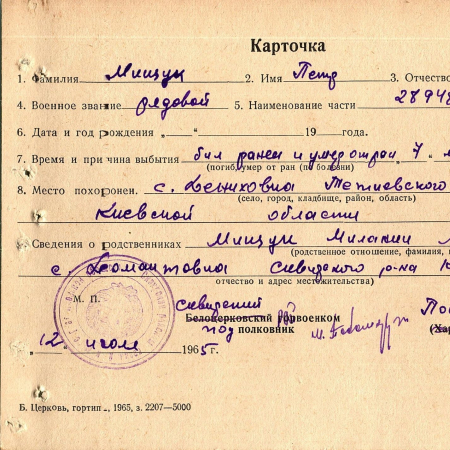 Карточка
1. Фамилия Мищук 2. Имя Петр 3. Отчество
4. Военное звание рядовой 5. Наименование части 28948
6. Дата и год рождения „ “ 19 года.
7. Время и при чина выбытия был ранен и умер от ран 7
(погиб, умер от ран (по болезни)
8. Место похоронен. с. Теплиевского
(село, город, кладбище, район, область)
Киевской области
9. Сведения о родственниках Мищук
(родственное отношение, фамилия,
с. сквирского р-на К
отчество и адрес местожительства)
М. П. сквирский
Белоцерковский горвоенком
подполковник (Ха
„12 июля 1965г.
Б. Церковь, гортип., 1965, з. 2207—5000